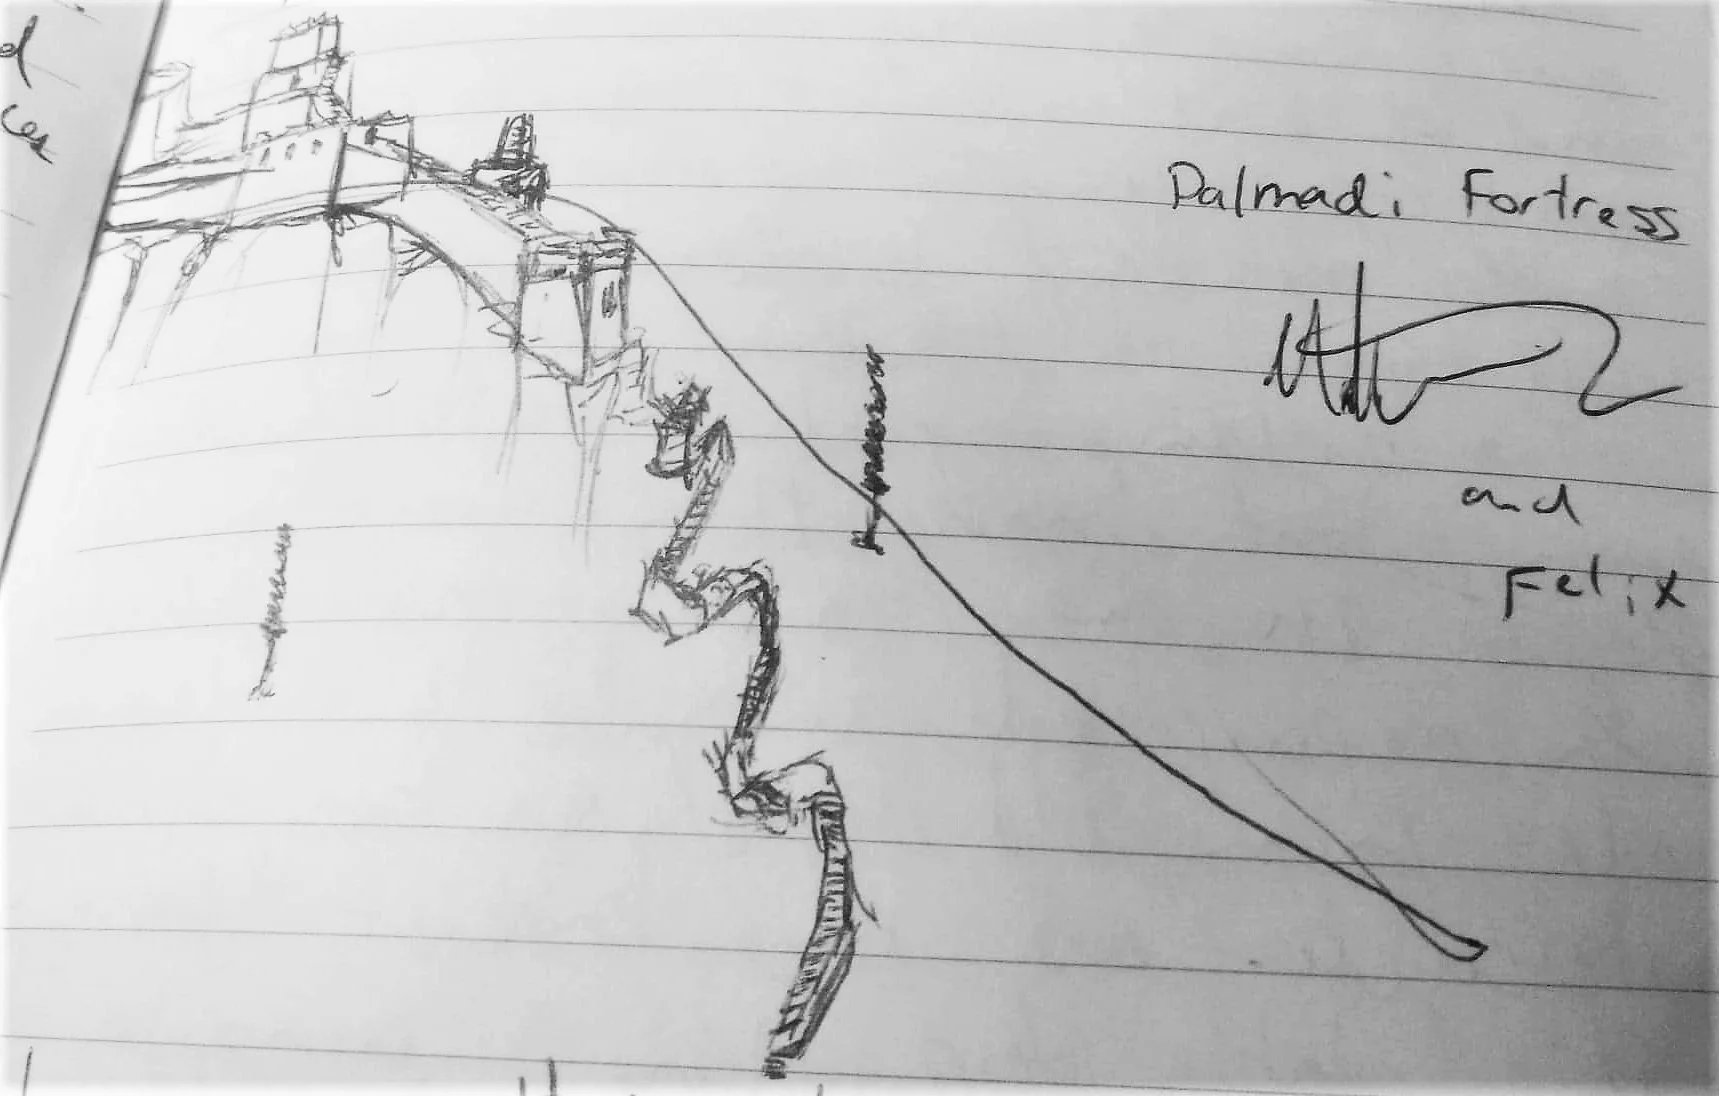 Palmadi Fortress
and
Felix